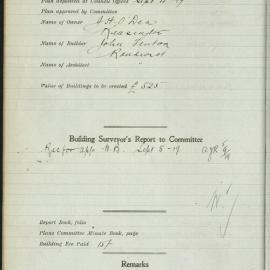 Plan deposited at Council Offices Sept 11-19
Plan approved by Committee
Name of Owner A H O'Dea
Name of Builder John Fenton
Name of Architect "
Value of Buildings to be erected £ 525
Building Surveyor's Report to Committee
Sept 5-19
Report Book, folio
Plans Committee Minute Book, page
Building Fee Paid 15/-
Remarks